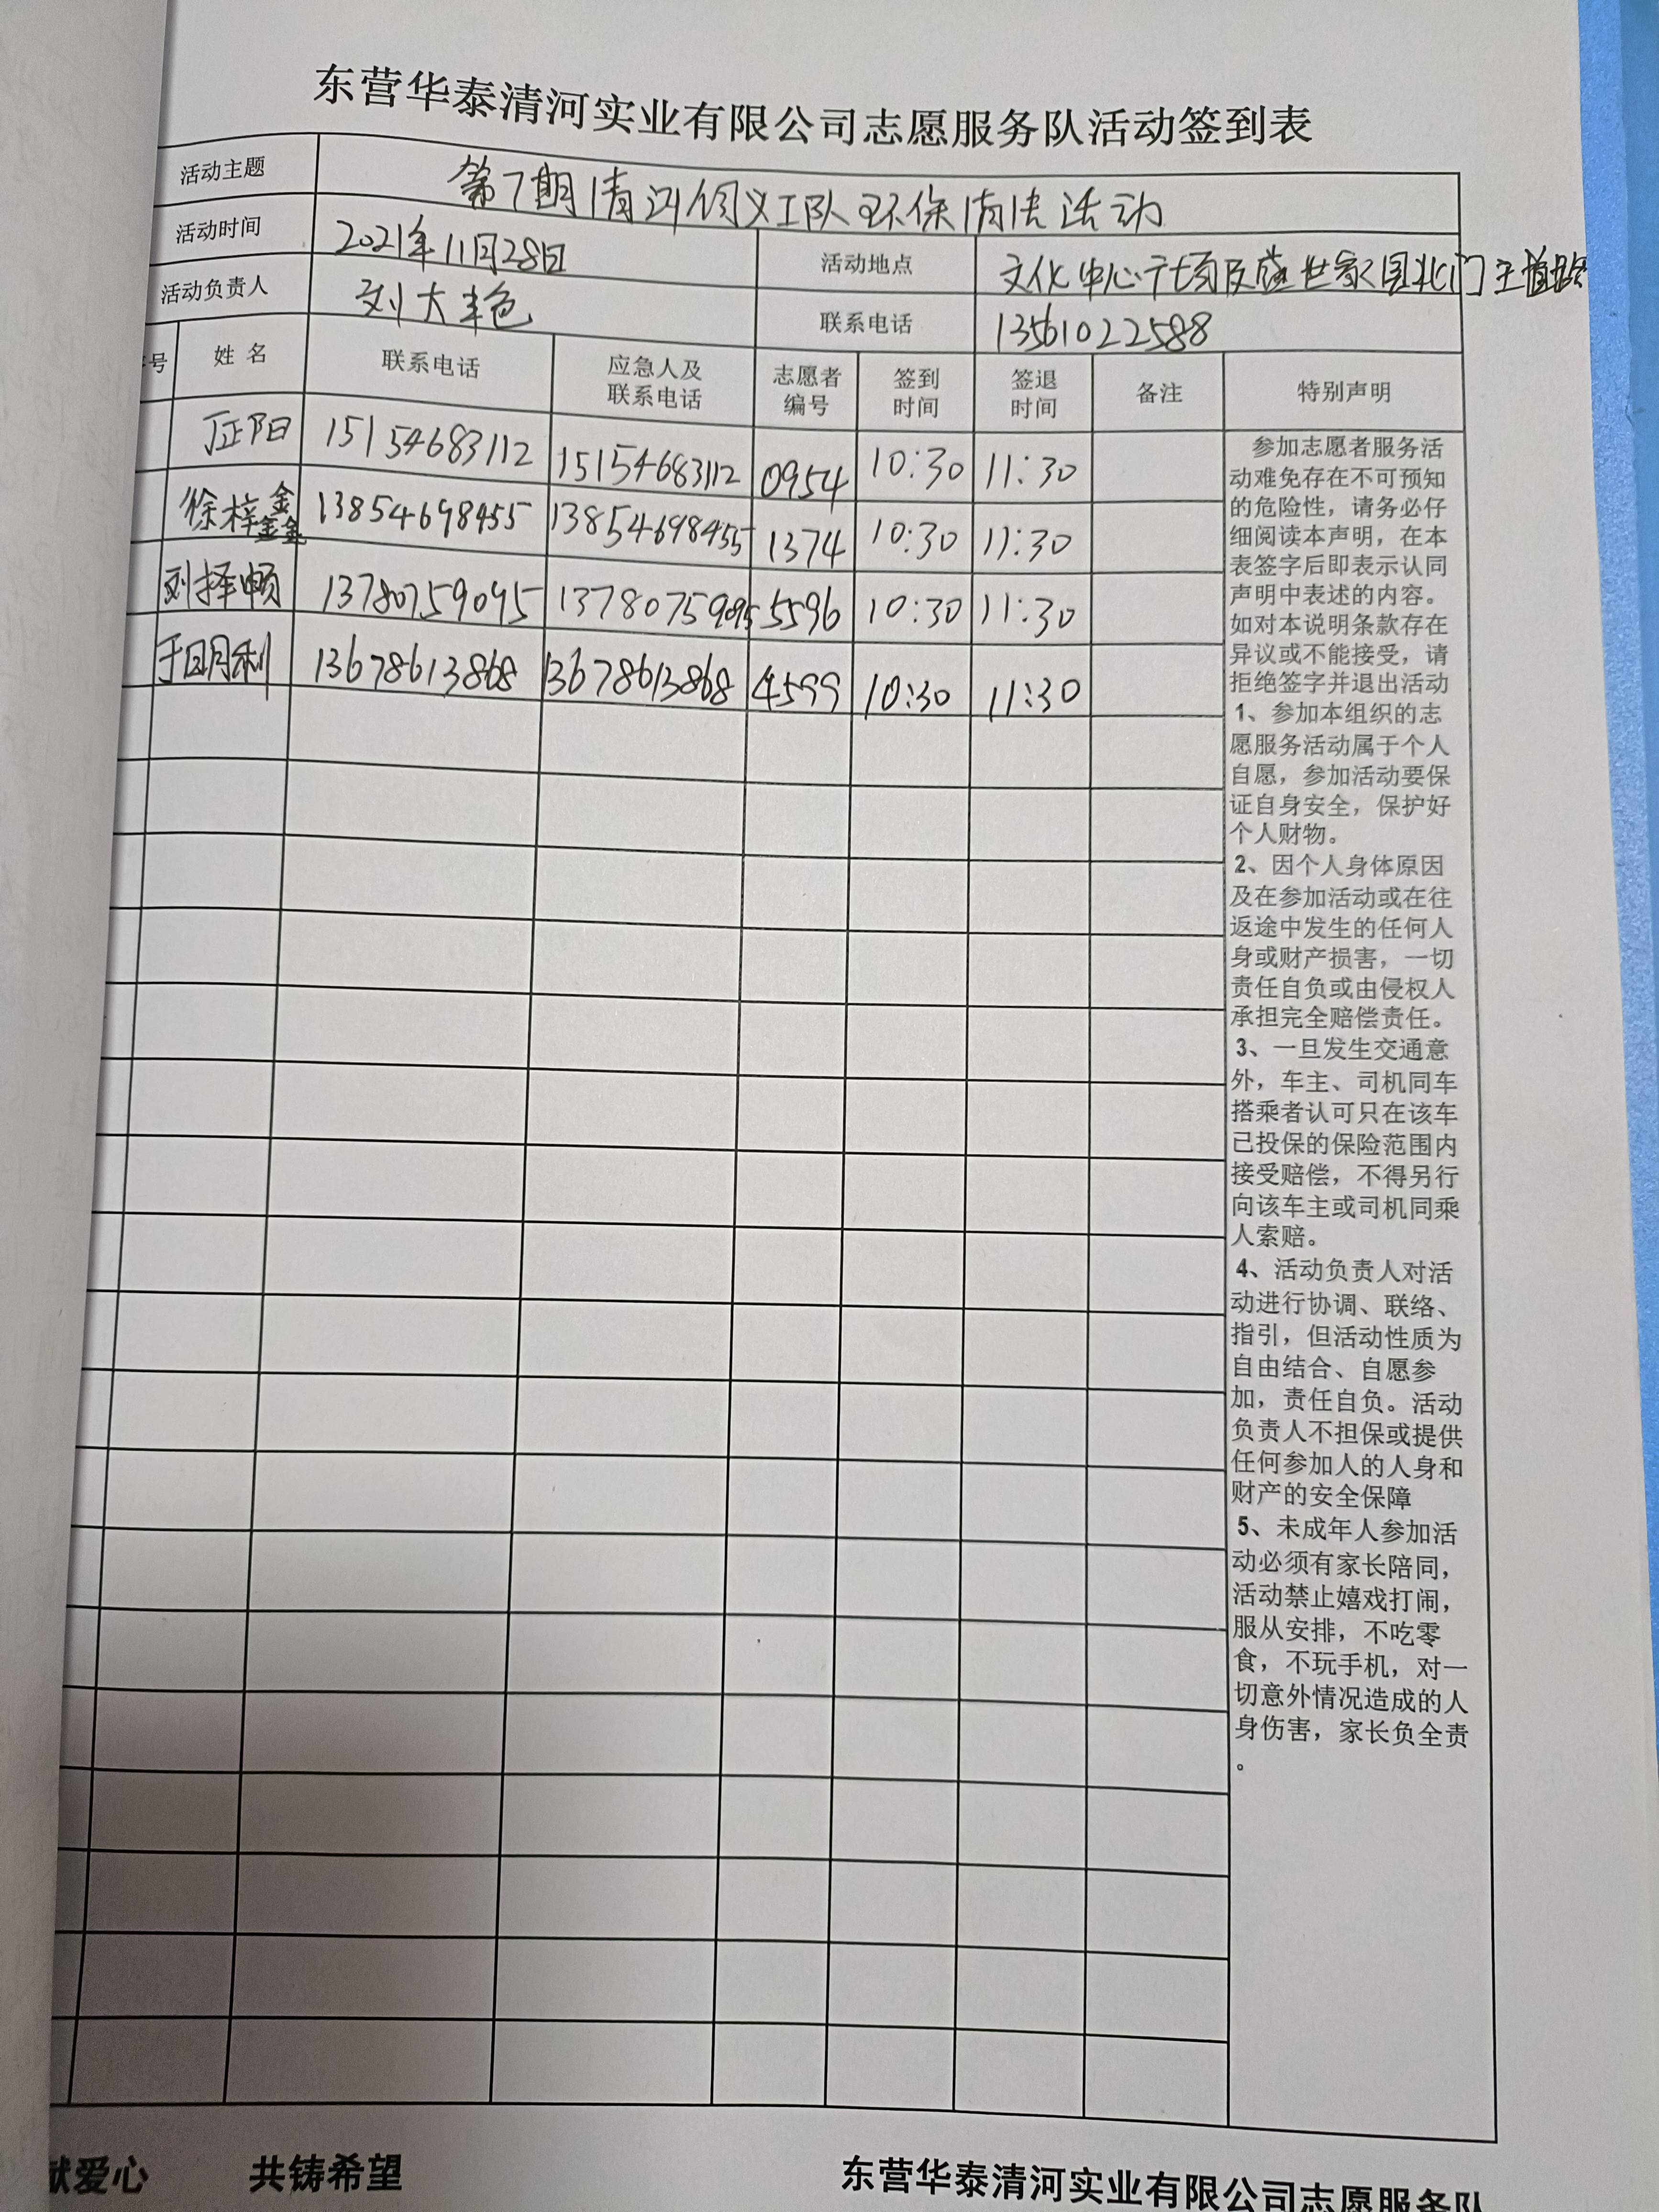 东营华泰清河实业有限公司志愿服务队活动签到表
活动主题 第7期清河义工队环保清洁活动
活动时间 2021年11月28日 活动地点 文化中心广场及盛世家园北门主道路
活动负责人 联系电话 13561022588
号 姓名 联系电话 应急人及联系电话 志愿者编号 签到时间 签退时间 备注 特别声明
15154683112 15154683112 0954 10:30 11:30
徐梓鑫 13854698455 13854698455 1374 10:30 11:30
13780759095 13780759095 5596 10:30 11:30
13678613868 13678613868 4599 10:30 11:30
参加志愿者服务活
动难免存在不可预知
的危险性，请务必仔
细阅读本声明，在本
表签字后即表示认同
声明中表述的内容。
如对本说明条款存在
异议或不能接受，请
拒绝签字并退出活动
1、参加本组织的志
愿服务活动属于个人
自愿，参加活动要保
证自身安全，保护好
个人财物。
2、因个人身体原因
及在参加活动或在往
返途中发生的任何人
身或财产损害，一切
责任自负或由侵权人
承担完全赔偿责任。
3、一旦发生交通意
外，车主、司机同车
搭乘者认可只在该车
已投保的保险范围内
接受赔偿，不得另行
向该车主或司机同乘
人索赔。
4、活动负责人对活
动进行协调、联络、
指引，但活动性质为
自由结合、自愿参
加，责任自负。活动
负责人不担保或提供
任何参加人的人身和
财产的安全保障
5、未成年人参加活
动必须有家长陪同，
活动禁止嬉戏打闹，
服从安排，不吃零
食，不玩手机，对一
切意外情况造成的人
身伤害，家长负全责
。
献爱心 共铸希望 东营华泰清河实业有限公司志愿服务队